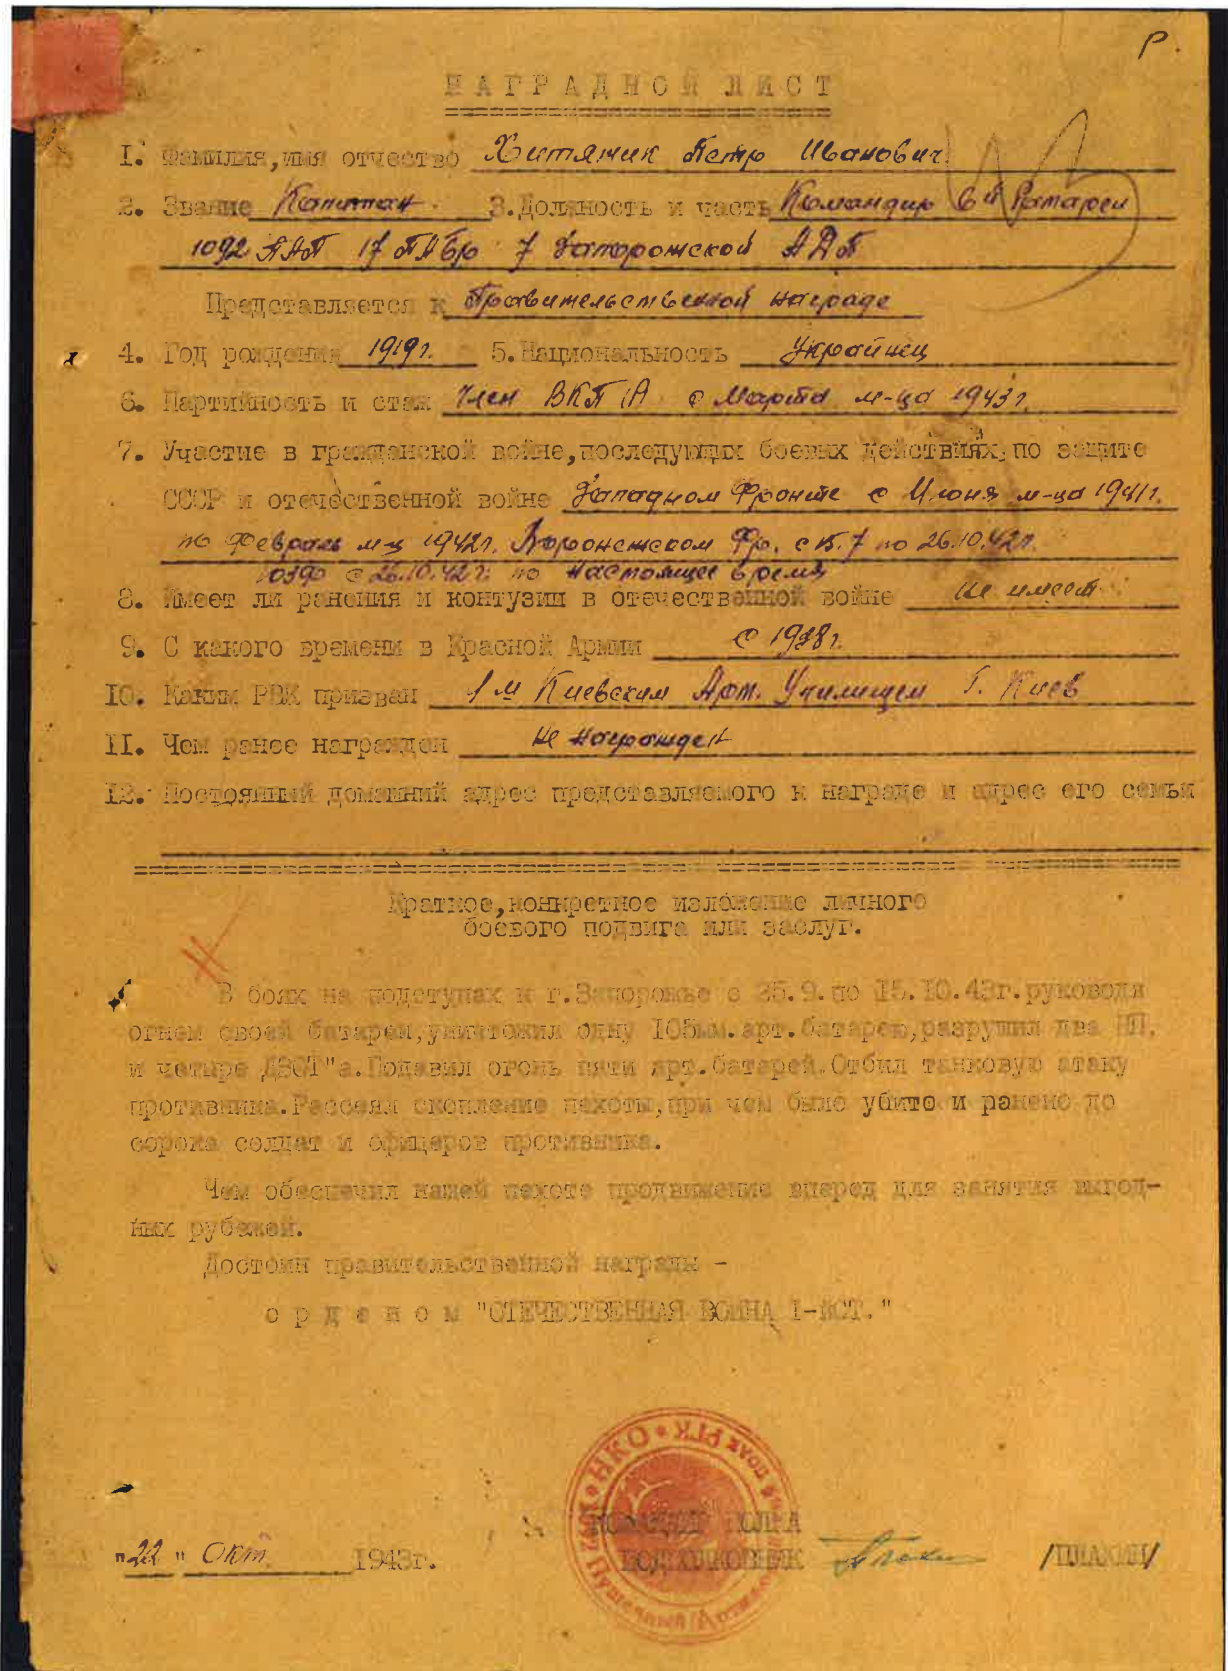 Р.
НАГРАДНОЙ ЛИСТ
I. Фамилия,имя отчество Хитяник Петр Иванович
2. Звание Капитан 3.Должность и часть Командир 6й Батареи
1092 ПАП 17 ПАБр 7 Запорожской АДП
Представляется к Правительственной награде
4. Год рождения 1919г. 5.Национальность Украинец
6. Партийность и стаж Член ВКП с Марта м-ца 1943г.
7. Участие в гражданской войне,последующих боевых действиях по защите
СССР и отечественной войне Западном Фронте с Июня м-ца 1941г.
по Февраль м-ц 1942г. Воронежском Фр. с 15.7 по 26.10.42г.
ЮЗФ с 26.10.42г. по настоящее время
8. Имеет ли ранения и контузии в отечественной войне не имеет
9. С какого времени в Красной Армии с 1938г.
10. Каким РВК призван 1м Киевским Арт. Училищем г. Киев
II. Чем ранее награжден не награжден
12. Постоянный домашний адрес представляемого к награде и адрес его семьи
Краткое,конкретное изложение личного
боевого подвига или заслуг.
В боях на подступах к г.Запорожье с 25.9.по 15.10.43г.руководя
огнем своей батареи,уничтожил одну 105мм.арт.батарею,разрушил два НП.
и четыре ДЗОТ"а.Подавил огонь пяти арт.батарей.Отбил танковую атаку
противника.Рассеял скопление пехоты,при чем было убито и ранено до
сорока солдат и офицеров противника.
Чем обеспечил нашей пехоте продвижение вперед для занятия выгод-
ных рубежей.
Достоин правительственной награды -
орденом "ОТЕЧЕСТВЕННАЯ ВОЙНА I-ЙСТ."
НКО
КОМАНДИР ПОЛКА
"22" Окт. 1943г. ПОДПОЛКОВНИК /ПЛАХИН/